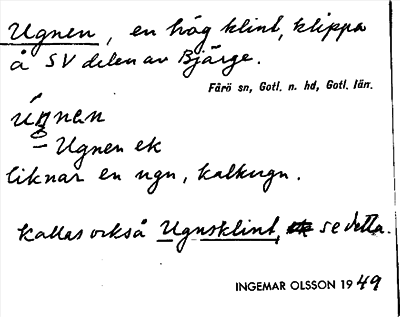 Ugnen, en hög klint, klippa
å SV delen av Bjärge.
Fårö sn, Gotl. n. hd, Gotl. län.
úŋnen
– Ugnen ek
liknar en ugn, kalkugn.
kallas också Ugnsklint, se detta.
INGEMAR OLSSON 1949